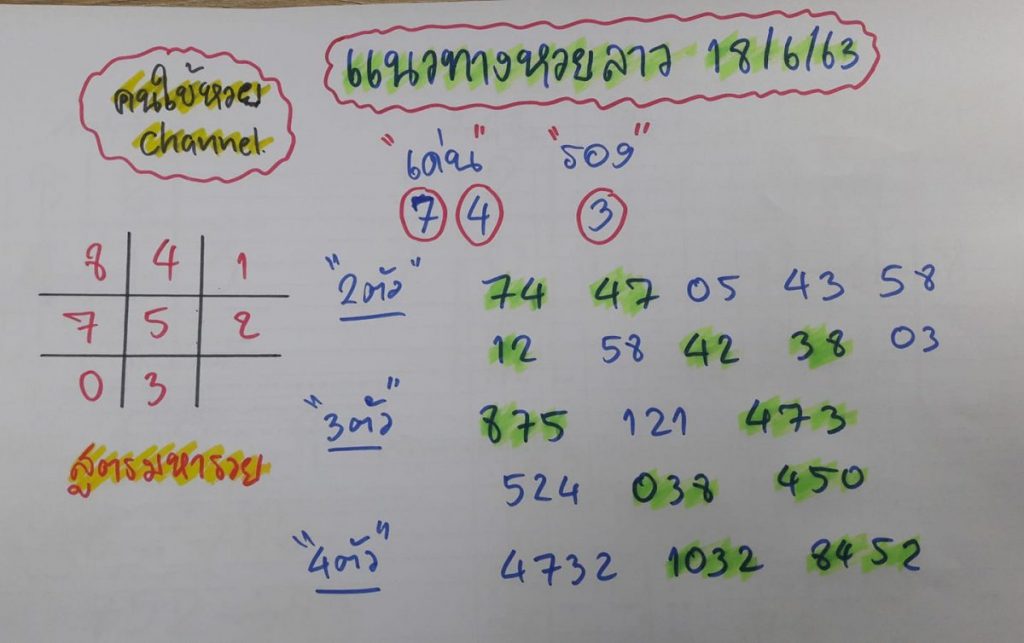 แนวทางหวยลาว 18/6/63
คนใบ้หวย
channel.
"เด่น" "รอง"
7 4 3
8 4 1
7 5 2
0 3
สูตรมหารวย
"2ตัว" 74 47 05 43 58
12 58 42 38 03
"3ตัว" 875 121 473
524 038 450
"4ตัว" 4732 1032 8452